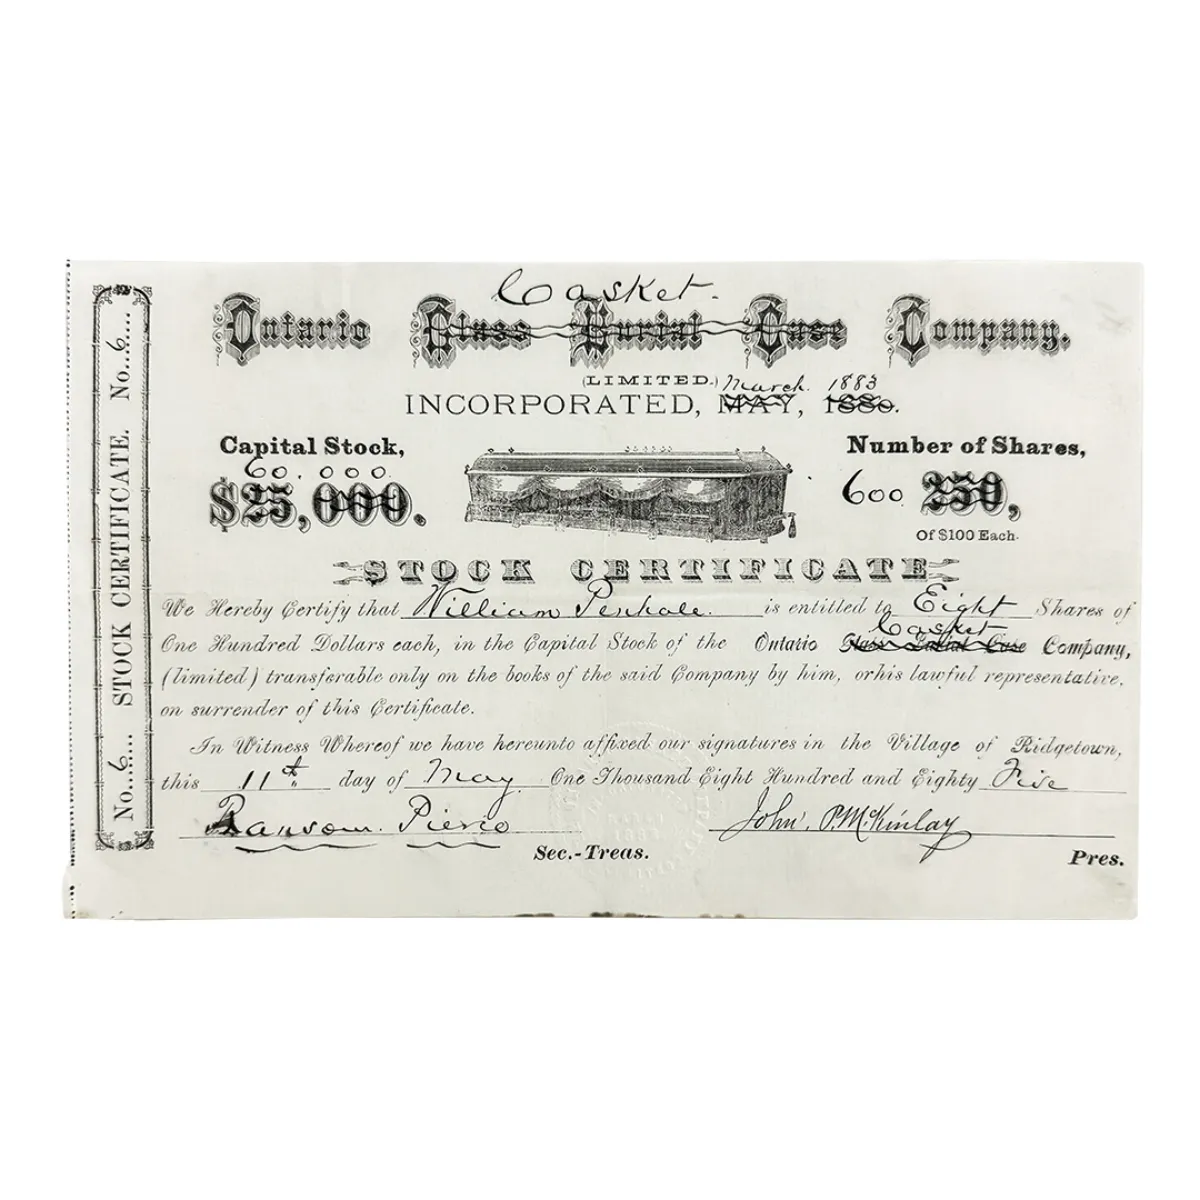 Casket.
Ontario Glass Burial Case Company.
(LIMITED.) March. 1883
INCORPORATED, MAY, 1880.
Capital Stock,
60.000.
$25,000.
Number of Shares,
600 250,
Of $100 Each.
STOCK CERTIFICATE
We Hereby Certify that William Penhale. is entitled to Eight Shares of
Casket
One Hundred Dollars each, in the Capital Stock of the Ontario Glass Burial Case Company,
(limited) transferable only on the books of the said Company by him, orhis lawful representative,
on surrender of this Certificate.
In Witness Whereof we have hereunto affixed our signatures in the Village of Ridgetown,
this 11th day of May. One Thousand Eight Hundred and Eighty Five
Ransom. Pierce John. P. McKinlay
Sec.-Treas. Pres.
No...6.... STOCK CERTIFICATE. No...6....